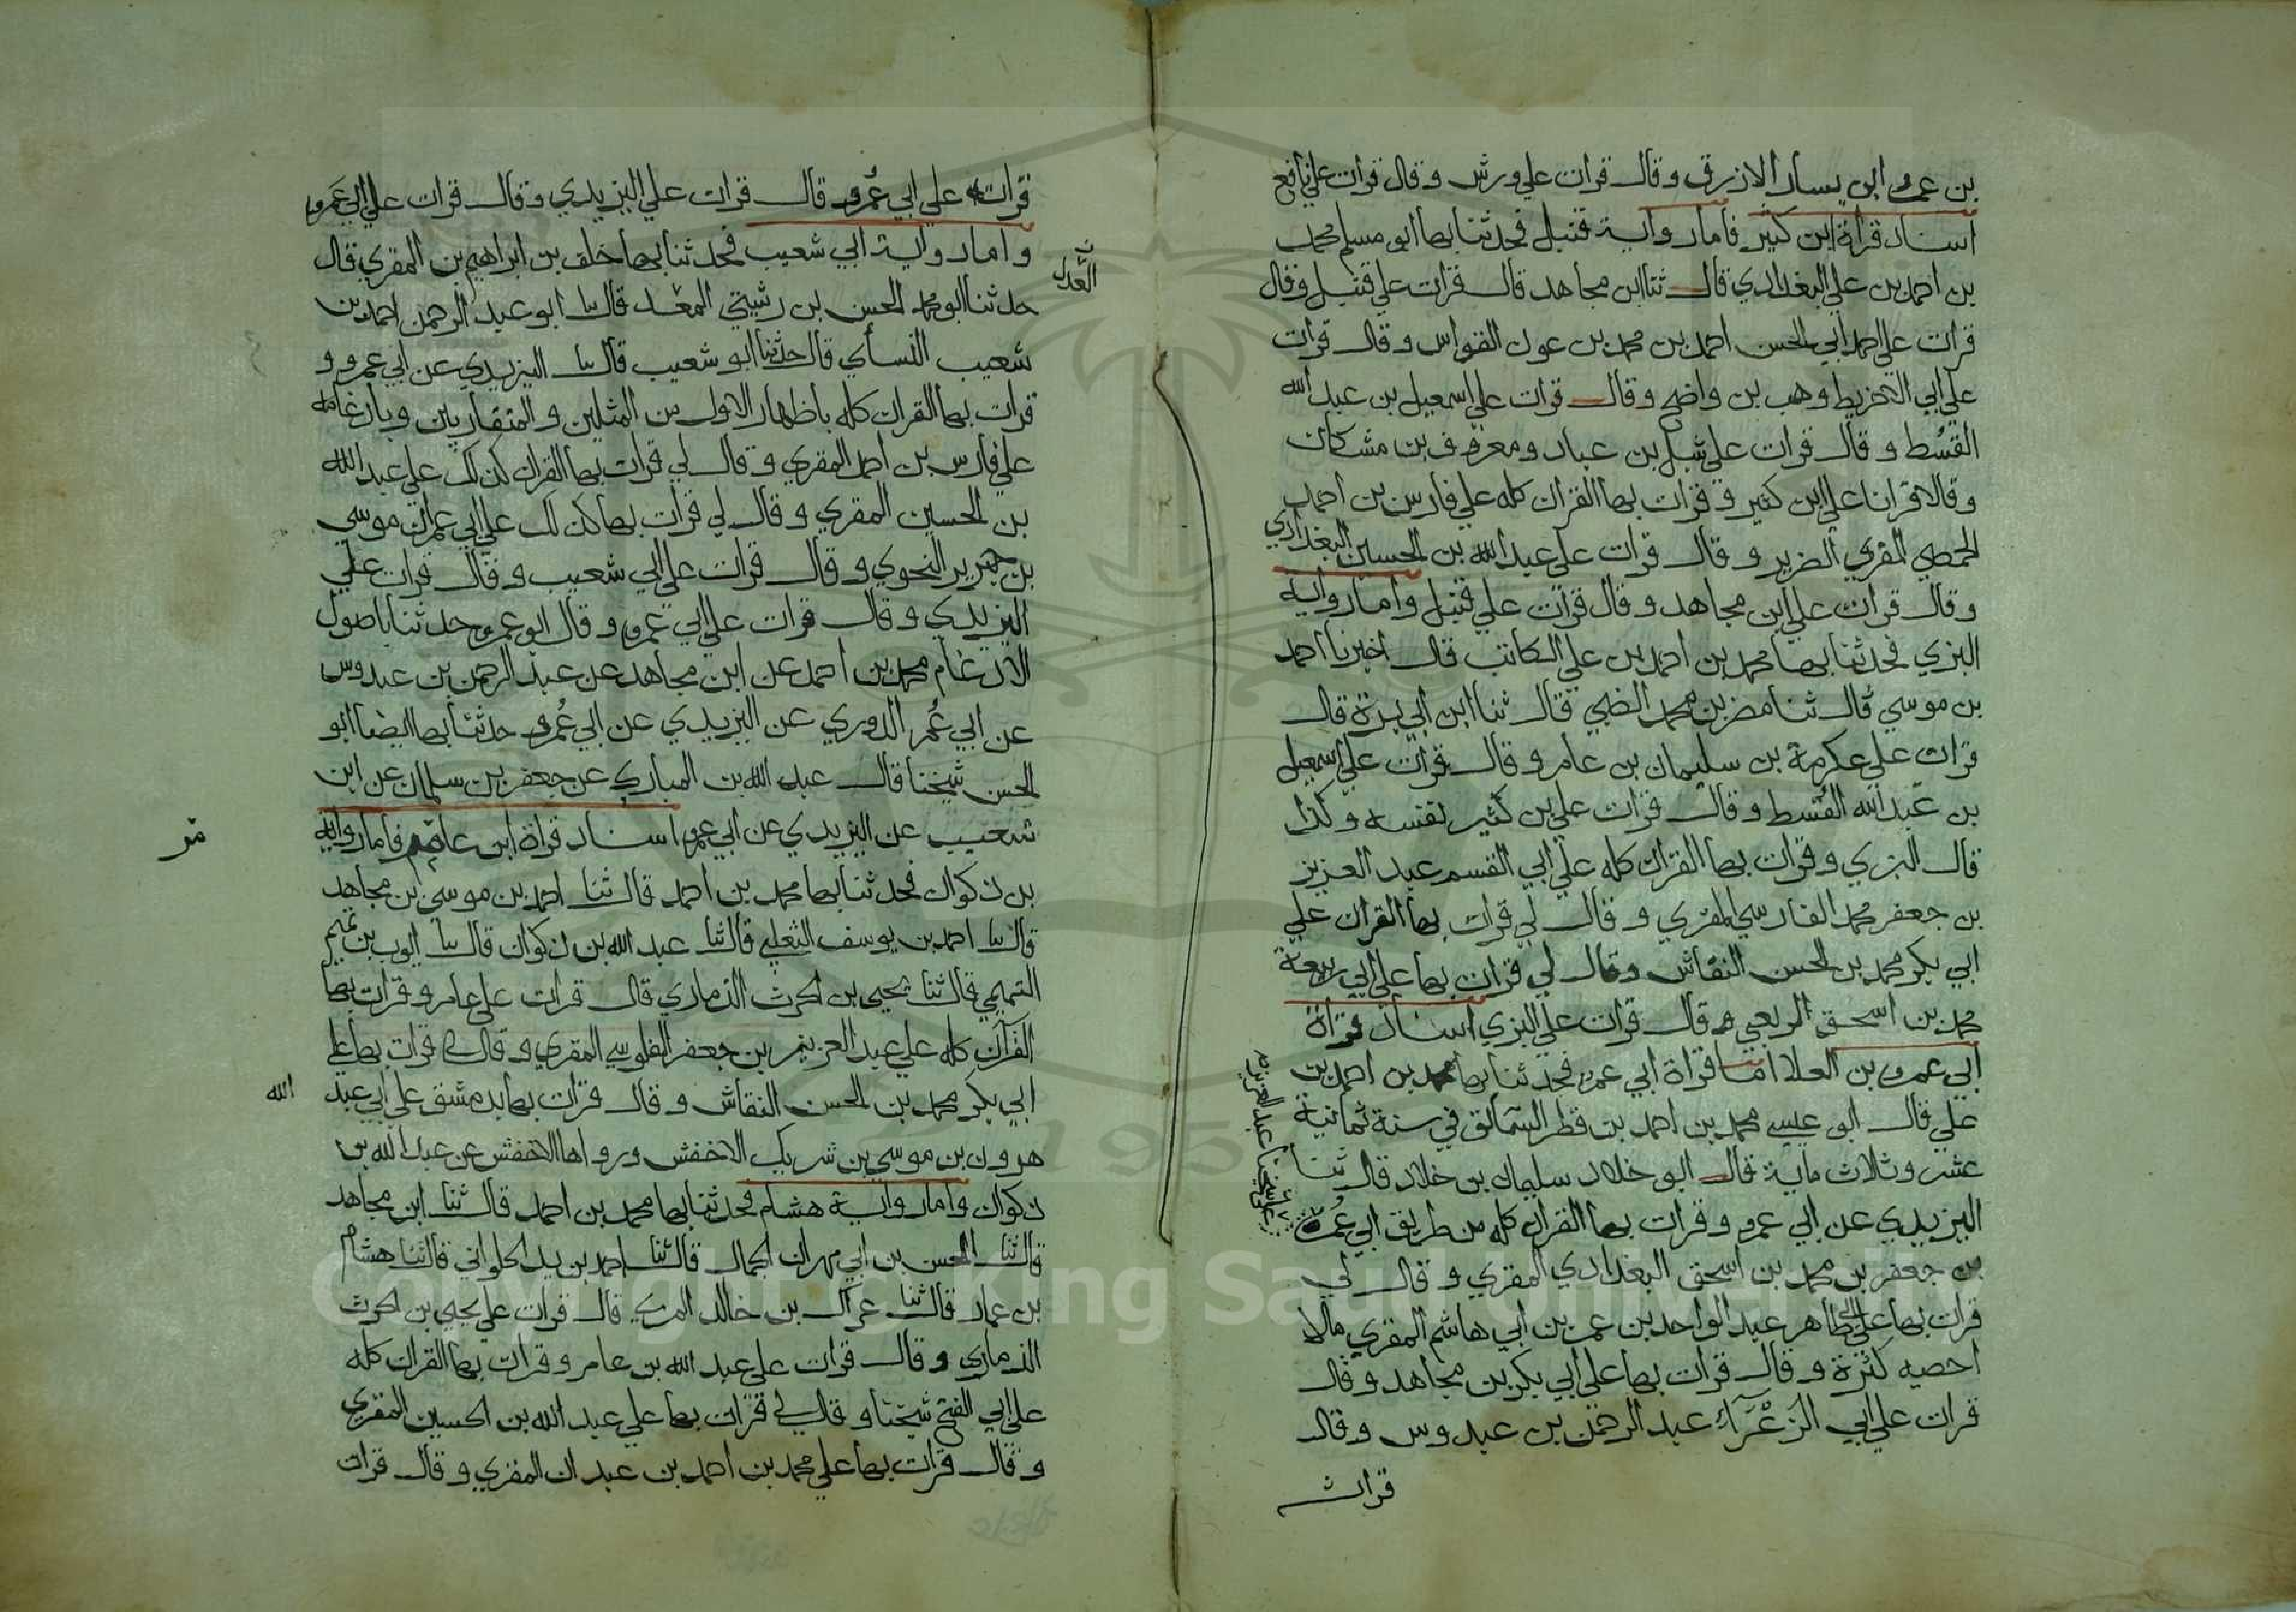 بن عمرو ابن يسار الازرق وقال قرات علي ورش وقال قرات علي نافع
اسناد قراة ابن كثير فاما رواية قنبل فحدثنا بها ابو مسلم محمد
بن احمد بن علي البغدادي قال ثنا ابن مجاهد قال قرات علي قنبل وقال
قرات علي احمد ابي الحسن احمد بن محمد بن عون القواس وقال قرات
علي ابي الاخريط وهب بن واضح وقال قرات علي اسمعيل بن عبد الله
القسُط وقال قرات علي شبل بن عباد ومعروف بن مشكان
وقالا قرانا علي ابن كثير وقرات بها القران كله علي فارس بن احمد
الحمصي المقري الضرير وقال قرات علي عبد الله بن الحسين البغدادي
وقال قرات علي ابن مجاهد وقال قرات علي قنبل واما رواية
البزي فحدثنا بها محمد بن احمد بن علي الكاتب قال اخبرنا احمد
بن موسي قال ثنا مضر بن محمد الضبي قال ثنا ابن ابي بزة قال
قرات علي عكرمة بن سليمان بن عامر وقال قرات علي اسمعيل
بن عبد الله القسط وقال قرات علي بن كثير نفسه وكذا
قال البزي وقرات بها القران كله علي ابي القسم عبد العزيز
بن جعفر محمد الفارسي المقري وقال لي قرات بها القران علي
ابي بكر محمد بن الحسن النقاش وقال لي قرات بها علي ابي ربيعة
محمد بن اسحق الربعي وقال قرات علي البزي اسناد قراة
ابي عمرو بن العلا اما قراة ابي عمرو فحدثنا بها محمد بن احمد بن
علي قال ابو عيسي محمد بن احمد بن قطر السمالق في سنة ثمانية
عشر وثلاث ماية قال ابو خلاد سليمان بن خلاد قال ثنا
اليزيدي عن ابي عمرو وقرات بها القران كله من طريق ابي عُمر
علي شيخنا عبد العزيز
بن جعفر بن محمد بن اسحق البغدادي المقري وقال لي
قرات بها علي ابي طاهر عبد الواحد بن عمر بن ابي هاشم المقري مالا
احصيه كثرة وقال قرات بها علي ابي بكر بن مجاهد وقال
قرات علي ابي الزَعْرَآء عبد الرحمن بن عبدوس وقال
قرات
قرات علي ابي عُمرو قال قرات علي اليزيدي وقال قرات علي ابي عَمرو
واما رواية ابي شعيب فحدثنا بها خلف بن ابراهيم بن المقري قال
حدثنا ابو محمد الحسن بن رشيق المعدل قال ثنا ابو عبد الرحمن احمد بن
العدل
شعيب النسأي قال حدثنا ابو شعيب قال ثنا اليزيدي عن ابي عمرو و
قرات بها القران كله باظهار الاول من المثلين والمتقاربين وبادغامه
علي فارس بن احمد المقري وقال لي قرات بها القران كذلك علي عبد الله
بن الحسين المقري وقال لي قرات بها كذلك علي ابي عمران موسي
بن جرير النحوي وقال قرات علي ابي شعيب وقال قرات علي
اليزيدي وقال قرات علي ابي عمرو وقال ابو عمرو حدثنا باصول
الادغام محمد بن احمد عن ابن مجاهد عن عبد الرحمن بن عبدوس
عن ابي عُمر الدوري عن اليزيدي عن ابي عُمرو حدثنا بها ايضا ابو
الحسن شيخنا قال عبد الله بن المبارك عن جعفر بن سلمان عن ابن
شعيب عن اليزيدي عن ابي عمرو اسناد قراة ابن عامر فاما رواية
بن ذكوان فحدثنا بها محمد بن احمد قال ثنا احمد بن موسي ابن مجاهد
قال ثنا احمد بن يوسف الثعلبي قال ثنا عبد الله بن ذكوان قال ثنا ايوب بن تميم
التميمي قال ثنا يحيى بن الحرث الذماري قال قرات علي عامر وقرات بها
القرآن كله علي عبد العزيز بن جعفر الفلوسي المقري وقال لي قرات بها علي
ابي بكر محمد بن الحسن النقاش وقال قرات بها بدمشق علي ابي عبد
الله
هرون بن موسي بن شريك الاخفش ورواها الاخفش عن عبد الله بن
ذكوان واما رواية هشام فحدثنا بها محمد بن احمد قال ثنا ابن مجاهد
قال ثنا الحسن بن ابي مهران الجمال قال ثنا احمد بن يزيد الحلواني قال ثنا هشام
بن عمار قال ثنا عراك بن خالد المري قال قرات علي يحيي بن الحرث
الذماري وقال قرات علي عبد الله بن عامر وقرات بها القران كله
علي ابي الفتح شيخنا وقال لي قرات بها علي عبد الله بن الحسين المقري
وقال قرات بها علي محمد بن احمد بن عبدان المقري وقال قرات
Copyright © King Saud University
1957